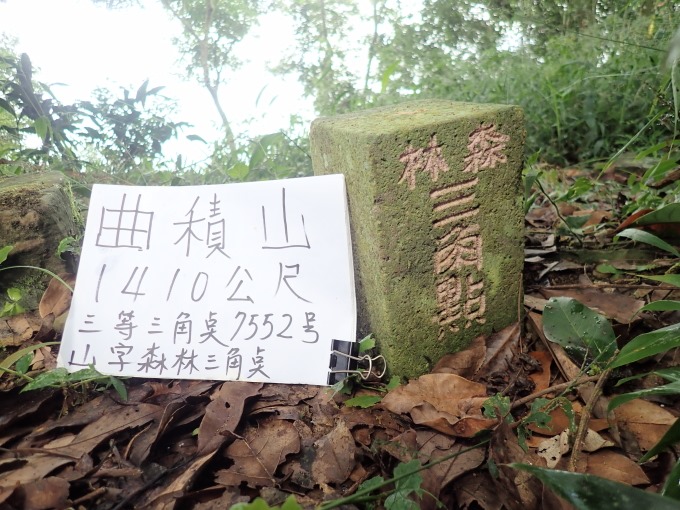 曲積山
1410公尺
三等三角点7552号
山字森林三角点
森林
三角點